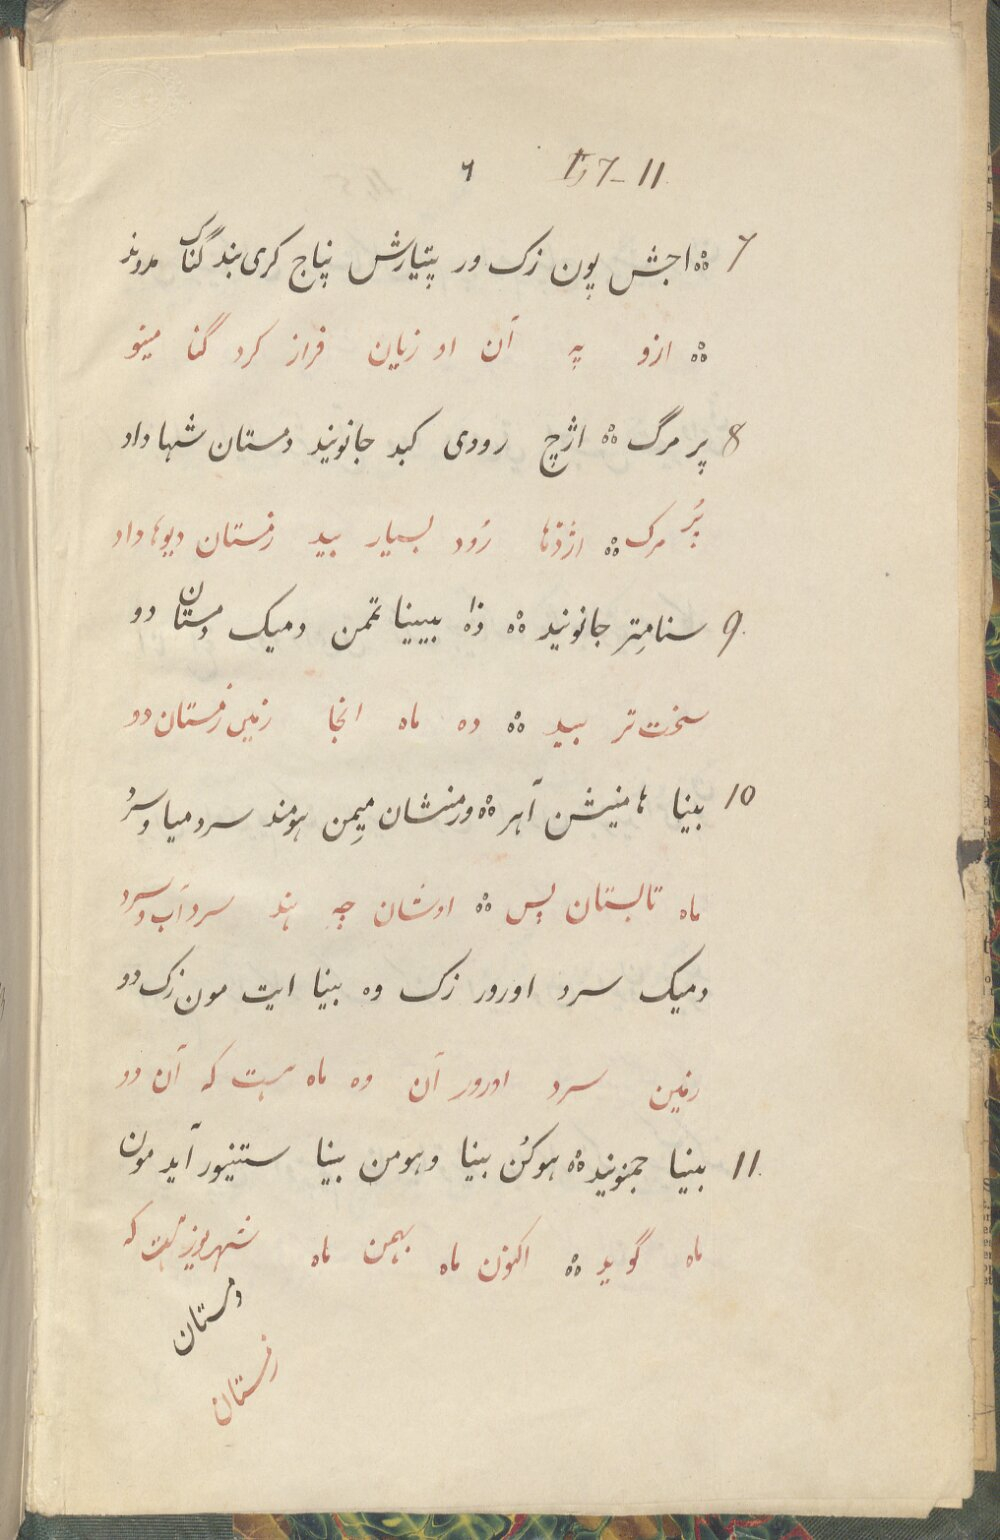 ۶ I 7-11
7 ❊ اجش پون زک ور پتیارش پناج کری بند گناک مروند
❊ ازو په آن او زیان فراز کرد گنا مینو
8 پر مرگ ❊ اژچ رودی کبد جانونید دمستان شهادا
پُر مرک ❊ اژدها رُود بسیار بید زمستان دیوها داد
9. سنامتر جانونید ❊ دٰاه بیینا تمن دمیک دمستان دو
سخت‌تر بید ❊ ده ماه انجا زمین زمستان دو
10 بینا هامنیشن آهر ❊ ورمنشان میمن هومند سرد میا و سرد
ماه تابستان پس ❊ اوشان چه هند سرد آب و سرد
دمیک سرد اورور زک وه بینا ایت مون زک دو
زمین سرد اورور آن وه ماه هست که آن دو
11. بینا جمنونید ❊ هوکُن بینا وهومن بینا ستنیور آید مون
ماه گوید ❊ اکنون ماه بهمن ماه شهریور هست که
دمستان
زمستان